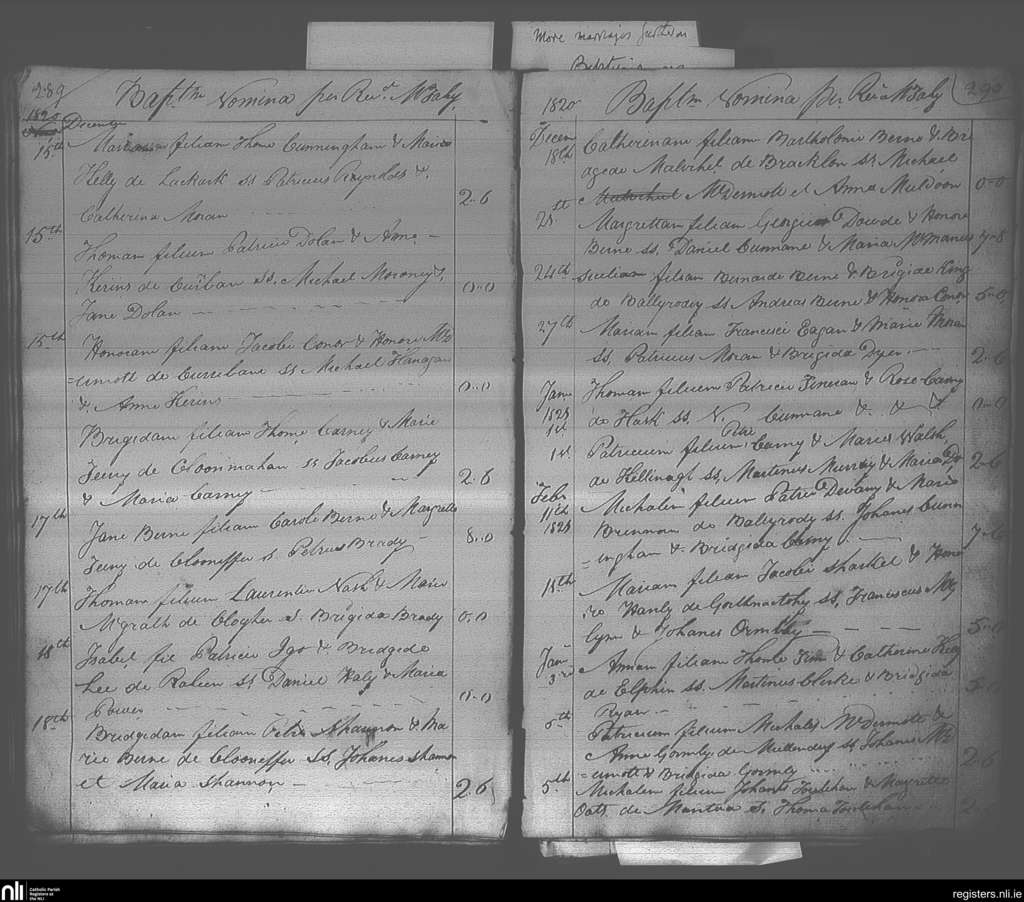 More marriages further on
289
Bapt.m Nomina per Rev.d McDaly
1820
December
15th
filiam Thome Cunningham & Marie
Kelly de Lackark ss Patricius Reynolds &
Catherina Moran
2..6
15th
Thomam filium Patricii Dolan & Anne
Kerins de ss. Michael Moroney &
Jane Dolan
0..0
15th
Honoram filiam Jacobi Conor & Honore McD
=ermott de ss Michael Flanagan
& Anne Kerins
0..0
Brigidam filiam Thome Carney & Marie
Feeny de Cloonmahan ss Jacobus Carney
& Maria Carney
2.6
17th
Jane Berne filiam Caroli Berne & Margrette
Feeny de Clooneffer ss Petrus Brady
8..0
17th
Thomam filium Laurentii Nash & Marie
McGrath de Clogher ss Brigida Brady
0..0
18th
Isabel fil Patricii Igo & Bridgede
Lee de Raheen ss Daniel Haly & Maria
Power
0..0
18th
Bridgidam filiam Petri Shannon & Ma
rie Berne de Clooneffer ss. Johanes Shannon
et Maria Shannon
2.6
290
1820
Bapt.m Nomina per Rev.d McDaly
Decem
18th
Catherinam filiam Bartholomi Berne & Bri
agede de Bracklon ss Michael
McDermott et Anna Muldoon
0-0
21st
Margrettam filiam Georgii Dowde & Honore
Berne ss. Daniel Cunnane & Maria McManus
7-8
24th
filiam Bernarde Berne & Brigide King
de Ballyrodey ss Andreas Berne & Honora Conor
5-0
27th
Mariam filiam Francisci Eagan & Marie Moran
ss. Patricius Moran & Brigida Dyer
2-6
Jany
1821
1st
Thomam filium Patricii Finican & Rose Carny
de Hask ss. N. Cunnane & & &
0-0
1st
Patricium filium Petri Carny & Maries Walsh
de ss, Martinus Murray & Maria
2-6
Feby
11th
1821
Michalem filium Patrii Devany & Marie
Brennan de Ballyrody ss. Johanes Cunn
=ingham & Bridgida Carny
7-6
15th
Mariam filiam Jacobi Sharket & Hono
re Hanly de ss. Franciscus
& Johanes Ormsby
5-0
Jan
3rd
Annam filiam Thome Finn & Catherine Kelly
de Elphin ss. Martinus Clerke & Bridgida
Ryan
5-0
5th
Patricium filium Michalis McDermott &
Anne Gormly de ss Johanes McD
=ermott & Bridgida Gormly
2-6
5th
Michalem filium Johanis & Margrette
Oats de Mantua ss. Thoma
nli
Catholic Parish
Registers at
the NLI
registers.nli.ie